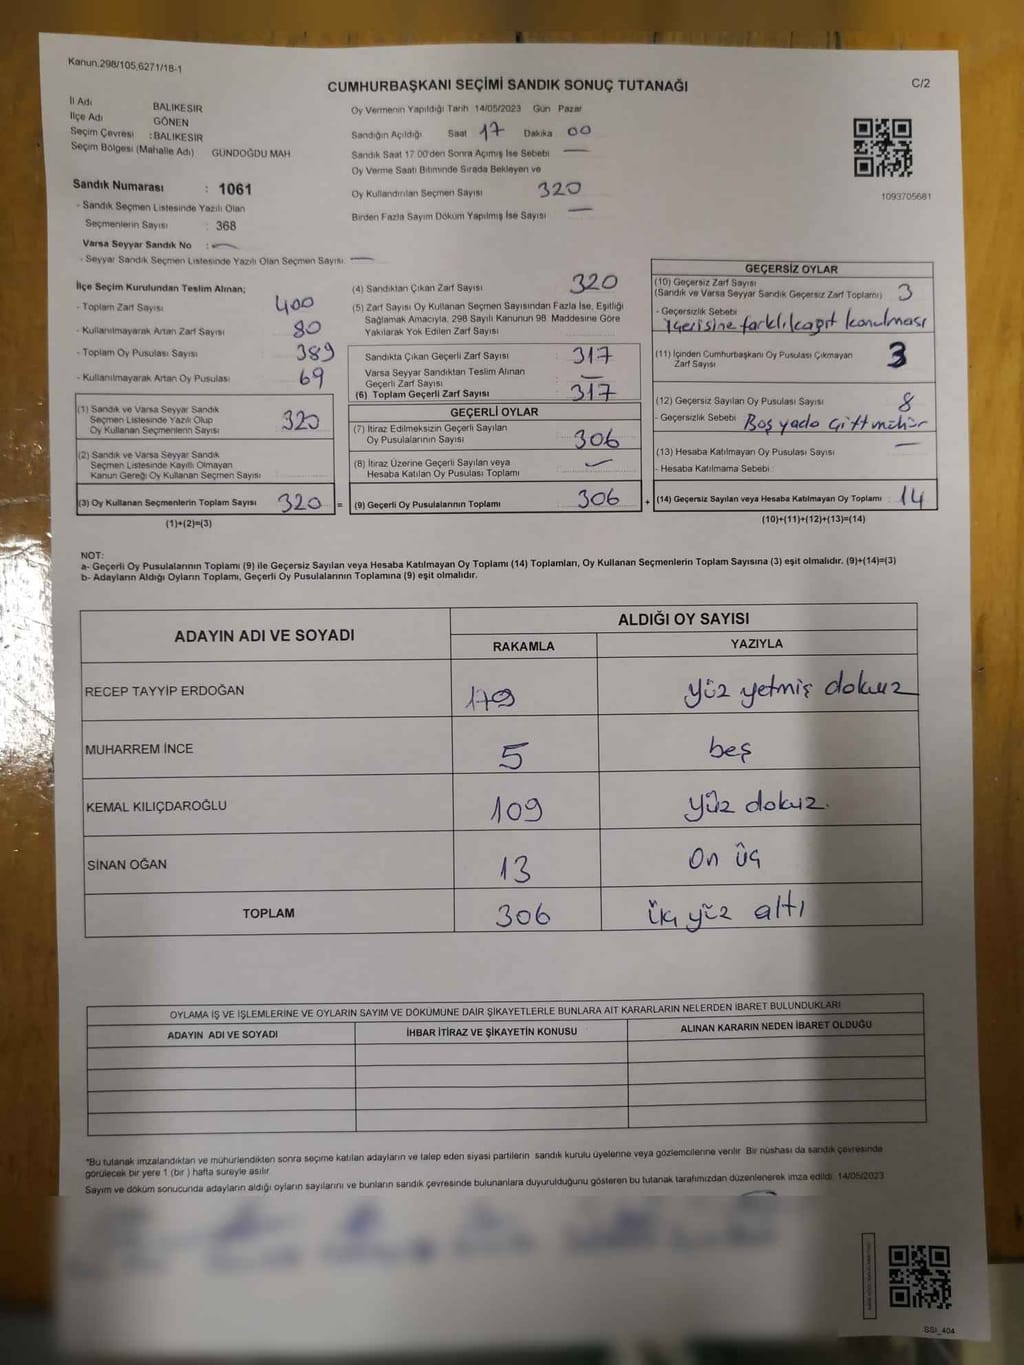 Kanun.298/105,6271/18-1
CUMHURBAŞKANI SEÇİMİ SANDIK SONUÇ TUTANAĞI
C/2
İl Adı BALIKESİR
İlçe Adı GÖNEN
Seçim Çevresi : BALIKESİR
Seçim Bölgesi (Mahalle Adı) GÜNDOĞDU MAH
Sandık Numarası : 1061
- Sandık Seçmen Listesinde Yazılı Olan
Seçmenlerin Sayısı : 368
Varsa Seyyar Sandık No : —
- Seyyar Sandık Seçmen Listesinde Yazılı Olan Seçmen Sayısı: —
Oy Vermenin Yapıldığı Tarih 14/05/2023 Gün Pazar
Sandığın Açıldığı Saat 17 Dakika 00
Sandık Saat 17:00'den Sonra Açımış İse Sebebi —
Oy Verme Saati Bitiminde Sırada Bekleyen ve
Oy Kullandırılan Seçmen Sayısı 320
Birden Fazla Sayım Döküm Yapılmış İse Sayısı —
1093705681
İlçe Seçim Kurulundan Teslim Alınan;
- Toplam Zarf Sayısı 400
- Kullanılmayarak Artan Zarf Sayısı 80
- Toplam Oy Pusulası Sayısı 389
- Kullanılmayarak Artan Oy Pusulası 69
(1) Sandık ve Varsa Seyyar Sandık
Seçmen Listesinde Yazılı Olup
Oy Kullanan Seçmenlerin Sayısı 320
(2) Sandık ve Varsa Seyyar Sandık
Seçmen Listesinde Kayıtlı Olmayan
Kanun Gereği Oy Kullanan Seçmen Sayısı
(3) Oy Kullanan Seçmenlerin Toplam Sayısı 320 =
(1)+(2)=(3)
(4) Sandıktan Çıkan Zarf Sayısı 320
(5) Zarf Sayısı Oy Kullanan Seçmen Sayısından Fazla İse, Eşitliği
Sağlamak Amacıyla, 298 Sayılı Kanunun 98. Maddesine Göre
Yakılarak Yok Edilen Zarf Sayısı
Sandıkta Çıkan Geçerli Zarf Sayısı : 317
Varsa Seyyar Sandıktan Teslim Alınan
Geçerli Zarf Sayısı : —
(6) Toplam Geçerli Zarf Sayısı : 317
GEÇERLİ OYLAR
(7) İtiraz Edilmeksizin Geçerli Sayılan
Oy Pusulalarının Sayısı : 306
(8) İtiraz Üzerine Geçerli Sayılan veya
Hesaba Katılan Oy Pusulası Toplamı : —
(9) Geçerli Oy Pusulalarının Toplamı : 306 +
GEÇERSİZ OYLAR
(10) Geçersiz Zarf Sayısı
(Sandık ve Varsa Seyyar Sandık Geçersiz Zarf Toplamı) 3
- Geçersizlik Sebebi
içerisine farklı kağıt konulması
(11) İçinden Cumhurbaşkanı Oy Pusulası Çıkmayan
Zarf Sayısı 3
(12) Geçersiz Sayılan Oy Pusulası Sayısı 8
- Geçersizlik Sebebi Boş yada çift mühür
(13) Hesaba Katılmayan Oy Pusulası Sayısı —
- Hesaba Katılmama Sebebi
(14) Geçersiz Sayılan veya Hesaba Katılmayan Oy Toplamı : 14
(10)+(11)+(12)+(13)=(14)
NOT:
a- Geçerli Oy Pusulalarının Toplamı (9) ile Geçersiz Sayılan veya Hesaba Katılmayan Oy Toplamı (14) Toplamları, Oy Kullanan Seçmenlerin Toplam Sayısına (3) eşit olmalıdır. (9)+(14)=(3)
b- Adayların Aldığı Oyların Toplamı, Geçerli Oy Pusulalarının Toplamına (9) eşit olmalıdır.
ADAYIN ADI VE SOYADI ALDIĞI OY SAYISI
RAKAMLA YAZIYLA
RECEP TAYYİP ERDOĞAN 179 yüz yetmiş dokuz
MUHARREM İNCE 5 beş
KEMAL KILIÇDAROĞLU 109 yüz dokuz.
SİNAN OĞAN 13 on üç
TOPLAM 306 iki yüz altı
OYLAMA İŞ VE İŞLEMLERİNE VE OYLARIN SAYIM VE DÖKÜMÜNE DAİR ŞİKAYETLERLE BUNLARA AİT KARARLARIN NELERDEN İBARET BULUNDUKLARI
ADAYIN ADI VE SOYADI İHBAR İTİRAZ VE ŞİKAYETİN KONUSU ALINAN KARARIN NEDEN İBARET OLDUĞU
*Bu tutanak imzalandıktan ve mühürlendikten sonra seçime katılan adayların ve talep eden siyasi partilerin sandık kurulu üyelerine veya gözlemcilerine verilir. Bir nüshası da sandık çevresinde
görülecek bir yere 1 (bir ) hafta süreyle asılır.
Sayım ve döküm sonucunda adayların aldığı oyların sayılarını ve bunların sandık çevresinde bulunanlara duyurulduğunu gösteren bu tutanak tarafımızdan düzenlenerek imza edildi. 14/05/2023
SSI_404